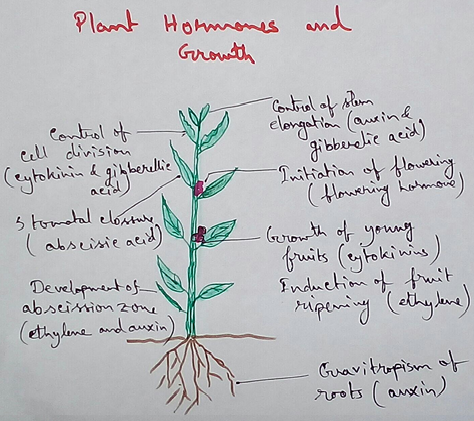 Plant Hormones and
Growth
Control of
cell division
(cytokinin & gibberellic
acid)
Stomatal closure
(abscisic acid)
Development of
abscission zone
(ethylene and auxin)
Control of stem
elongation (auxin &
gibberellic acid)
Initiation of flowering
(flowering hormone)
Growth of young
fruits (cytokinins)
Induction of fruit
ripening (ethylene)
Gravitropism of
roots (auxin)